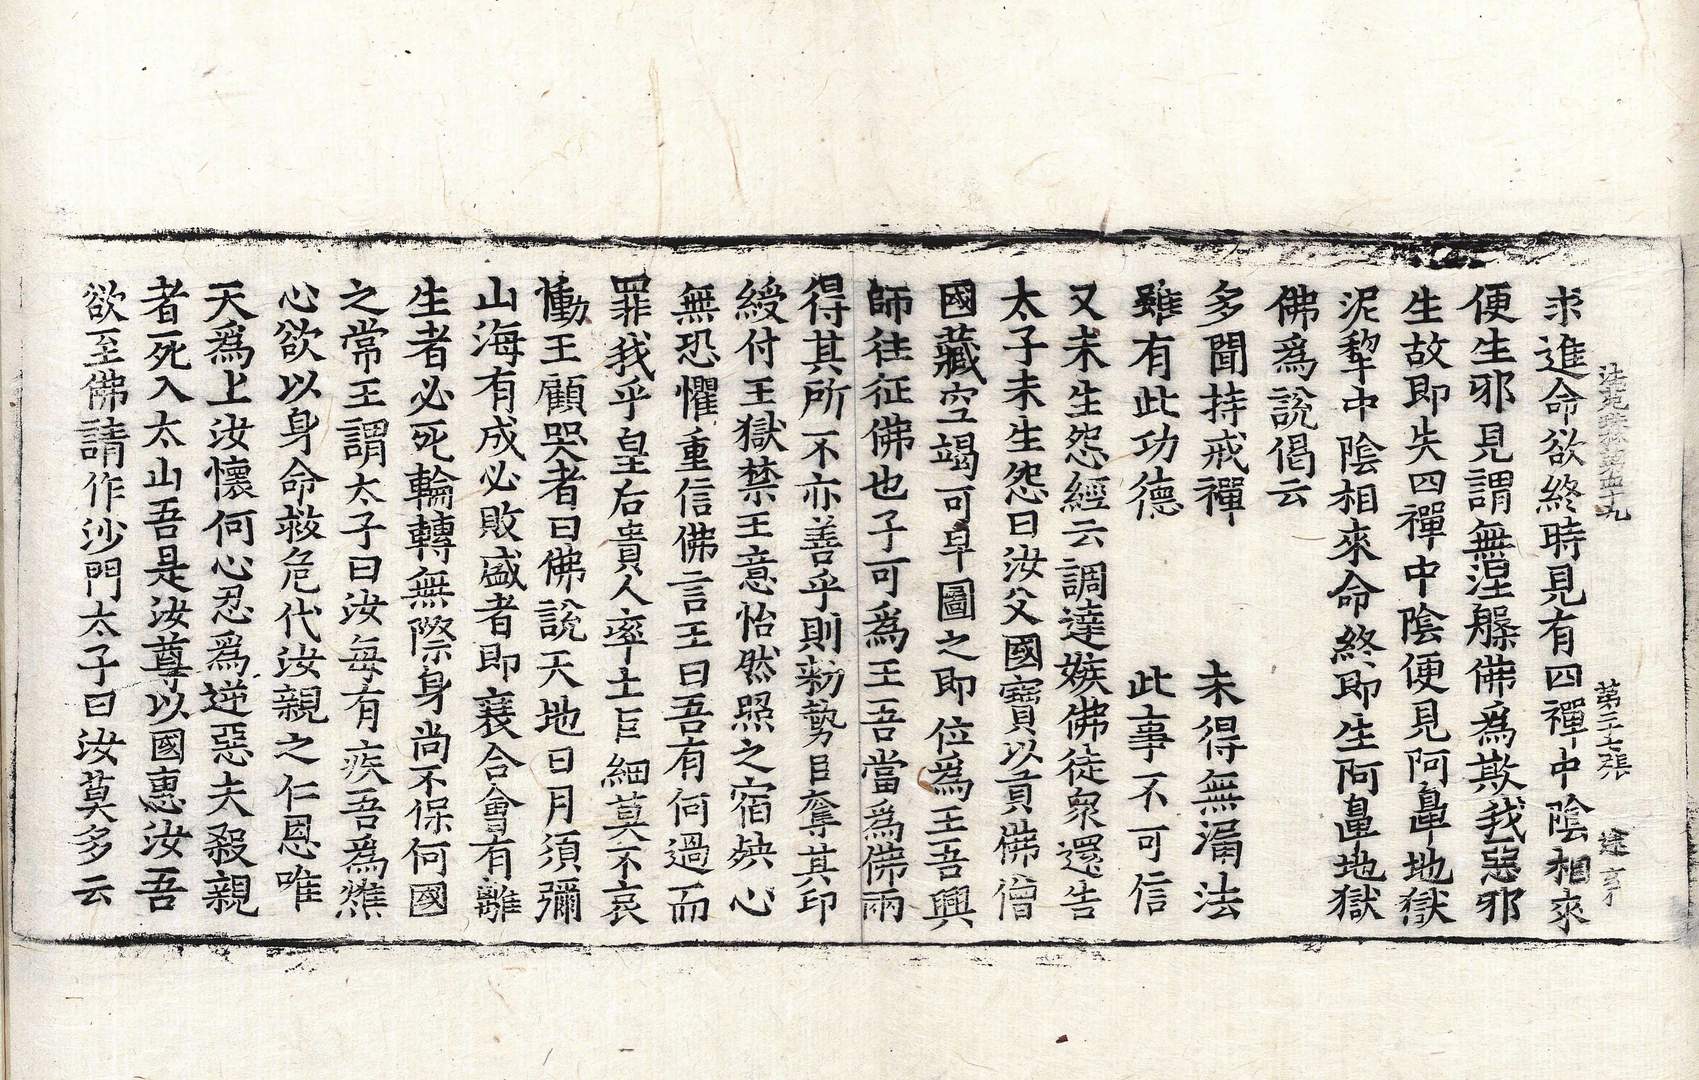 法苑珠林第五十九 第二十七張
求進命欲終時見有四禪中陰相來
便生邪見謂無涅槃佛為欺我惡邪
生故即失四禪中陰便見阿鼻地獄
泥犁中陰相來命終即生阿鼻地獄
佛為說偈云
多聞持戒禪 未得無漏法
雖有此功德 此事不可信
又未生怨經云調達嫉佛徒衆還告
太子未生怨曰汝父國寶以貢佛僧
國藏空竭可早圖之即位為王吾興
師往征佛也子可為王吾當為佛兩
得其所不亦善乎則勑勢臣奪其印
綬付王獄禁王意怡然照之宿殃心
無恐懼重信佛言王曰吾有何過而
罪我乎皇右貴人率土臣細莫不哀
慟王顧哭者曰佛說天地日月須彌
山海有成必敗盛者即衰合會有離
生者必死輪轉無際身尚不保何國
之常王謂太子曰汝每有疾吾為燋
心欲以身命救危代汝親之仁恩唯
天為上汝懷何心忍為逆惡夫殺親
者死入太山吾是汝尊以國惠汝吾
欲至佛請作沙門太子曰汝莫多云